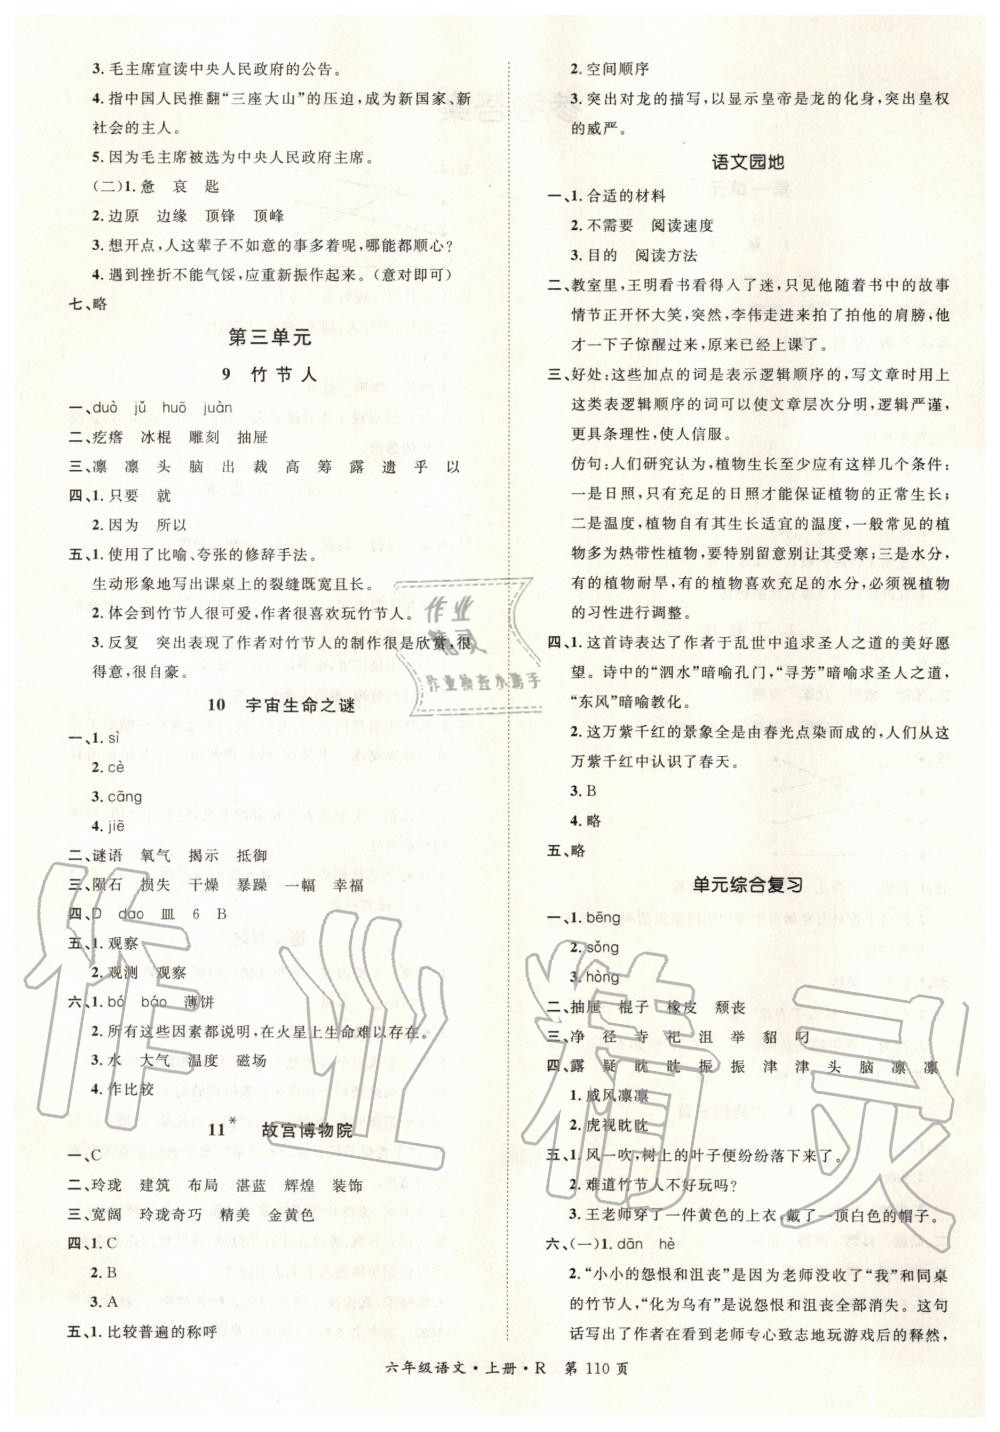 3. 毛主席宣读中央人民政府的公告。
4. 指中国人民推翻“三座大山”的压迫，成为新国家、新
社会的主人。
5. 因为毛主席被选为中央人民政府主席。
(二)1. 惫　哀　匙
2. 边原　边缘　顶锋　顶峰
3. 想开点，人这辈子不如意的事多着呢，哪能都顺心？
4. 遇到挫折不能气馁，应重新振作起来。（意对即可）
七、略
第三单元
9　竹节人
一、duò　jǔ　huō　juàn
二、疙瘩　冰棍　雕刻　抽屉
三、凛　凛　头　脑　出　裁　高　筹　露　遗　乎　以
四、1. 只要　就
2. 因为　所以
五、1. 使用了比喻、夸张的修辞手法。
生动形象地写出课桌上的裂缝既宽且长。
2. 体会到竹节人很可爱，作者很喜欢玩竹节人。
3. 反复　突出表现了作者对竹节人的制作很是欣赏，很
得意，很自豪。
10　宇宙生命之谜
一、1. sì
2. cè
3. cāng
4. jiē
二、谜语　氧气　揭示　抵御
三、陨石　损失　干燥　暴躁　一幅　幸福
四、D　dao　皿　6　B
五、1. 观察
2. 观测　观察
六、1. bó　báo　薄饼
2. 所有这些因素都说明，在火星上生命难以存在。
3. 水　大气　温度　磁场
4. 作比较
11*　故宫博物院
一、C
二、玲珑　建筑　布局　湛蓝　辉煌　装饰
三、宽阔　玲珑奇巧　精美　金黄色
四、1. C
2. B
3. A
五、1. 比较普遍的称呼
2. 空间顺序
3. 突出对龙的描写，以显示皇帝是龙的化身，突出皇权
的威严。
语文园地
一、1. 合适的材料
2. 不需要　阅读速度
3. 目的　阅读方法
二、教室里，王明看书看得入了迷，只见他随着书中的故事
情节正开怀大笑，突然，李伟走进来拍了拍他的肩膀，他
才一下子惊醒过来，原来已经上课了。
三、好处：这些加点的词是表示逻辑顺序的，写文章时用上
这类表逻辑顺序的词可以使文章层次分明，逻辑严谨，
更具条理性，使人信服。
仿句：人们研究认为，植物生长至少应有这样几个条件：
一是日照，只有充足的日照才能保证植物的正常生长；
二是温度，植物自有其生长适宜的温度，一般常见的植
物多为热带性植物，要特别留意别让其受寒；三是水分，
有的植物耐旱，有的植物喜欢充足的水分，必须视植物
的习性进行调整。
四、1. 这首诗表达了作者于乱世中追求圣人之道的美好愿
望。诗中的“泗水”暗喻孔门，“寻芳”暗喻求圣人之道，
“东风”暗喻教化。
2. 这万紫千红的景象全是由春光点染而成的，人们从这
万紫千红中认识了春天。
3. B
4. 略
五、略
单元综合复习
一、1. bēng
2. sǒng
3. hòng
二、抽屉　棍子　橡皮　颓丧
三、净　径　寺　祀　沮　举　貂　叼
四、露　疑　眈　眈　振　振　津　津　头　脑　凛　凛
1. 威风凛凛
2. 虎视眈眈
五、1. 风一吹，树上的叶子便纷纷落下来了。
2. 难道竹节人不好玩吗？
3. 王老师穿了一件黄色的上衣，戴了一顶白色的帽子。
六、(一)1. dān　hè
2. “小小的怨恨和沮丧”是因为老师没收了“我”和同桌
的竹节人，“化为乌有”是说怨恨和沮丧全部消失。这句
话写出了作者在看到老师专心致志地玩游戏后的释然，
六年级语文·上册·R　第 110 页
作业精灵
作业
精灵
作业检查小助手